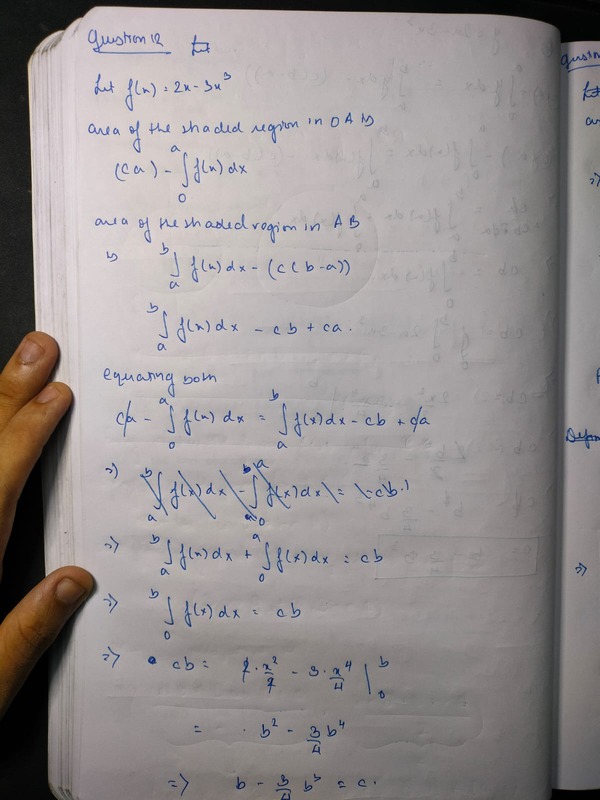 Question 12 Let
Let f(x) = 2x - 3x³
area of the shaded region in OAD
(ca) - ∫₀ᵃ f(x) dx
area of the shaded region in AB
∫ₐᵇ f(x) dx - (c(b-a))
∫ₐᵇ f(x) dx - cb + ca.
equating both
ca - ∫₀ᵃ f(x) dx = ∫ₐᵇ f(x) dx - cb + ca
=> ∫ₐᵇ f(x) dx - ∫₀ᵃ f(x) dx = -cb
=> ∫ₐᵇ f(x) dx + ∫₀ᵃ f(x) dx = cb
=> ∫₀ᵇ f(x) dx = cb
=> cb = 2·x²/2 - 3·x⁴/4 |₀ᵇ
= b² - 3/4 b⁴
=> b - 3/4 b³ = c.
Question
Let
=>
=>